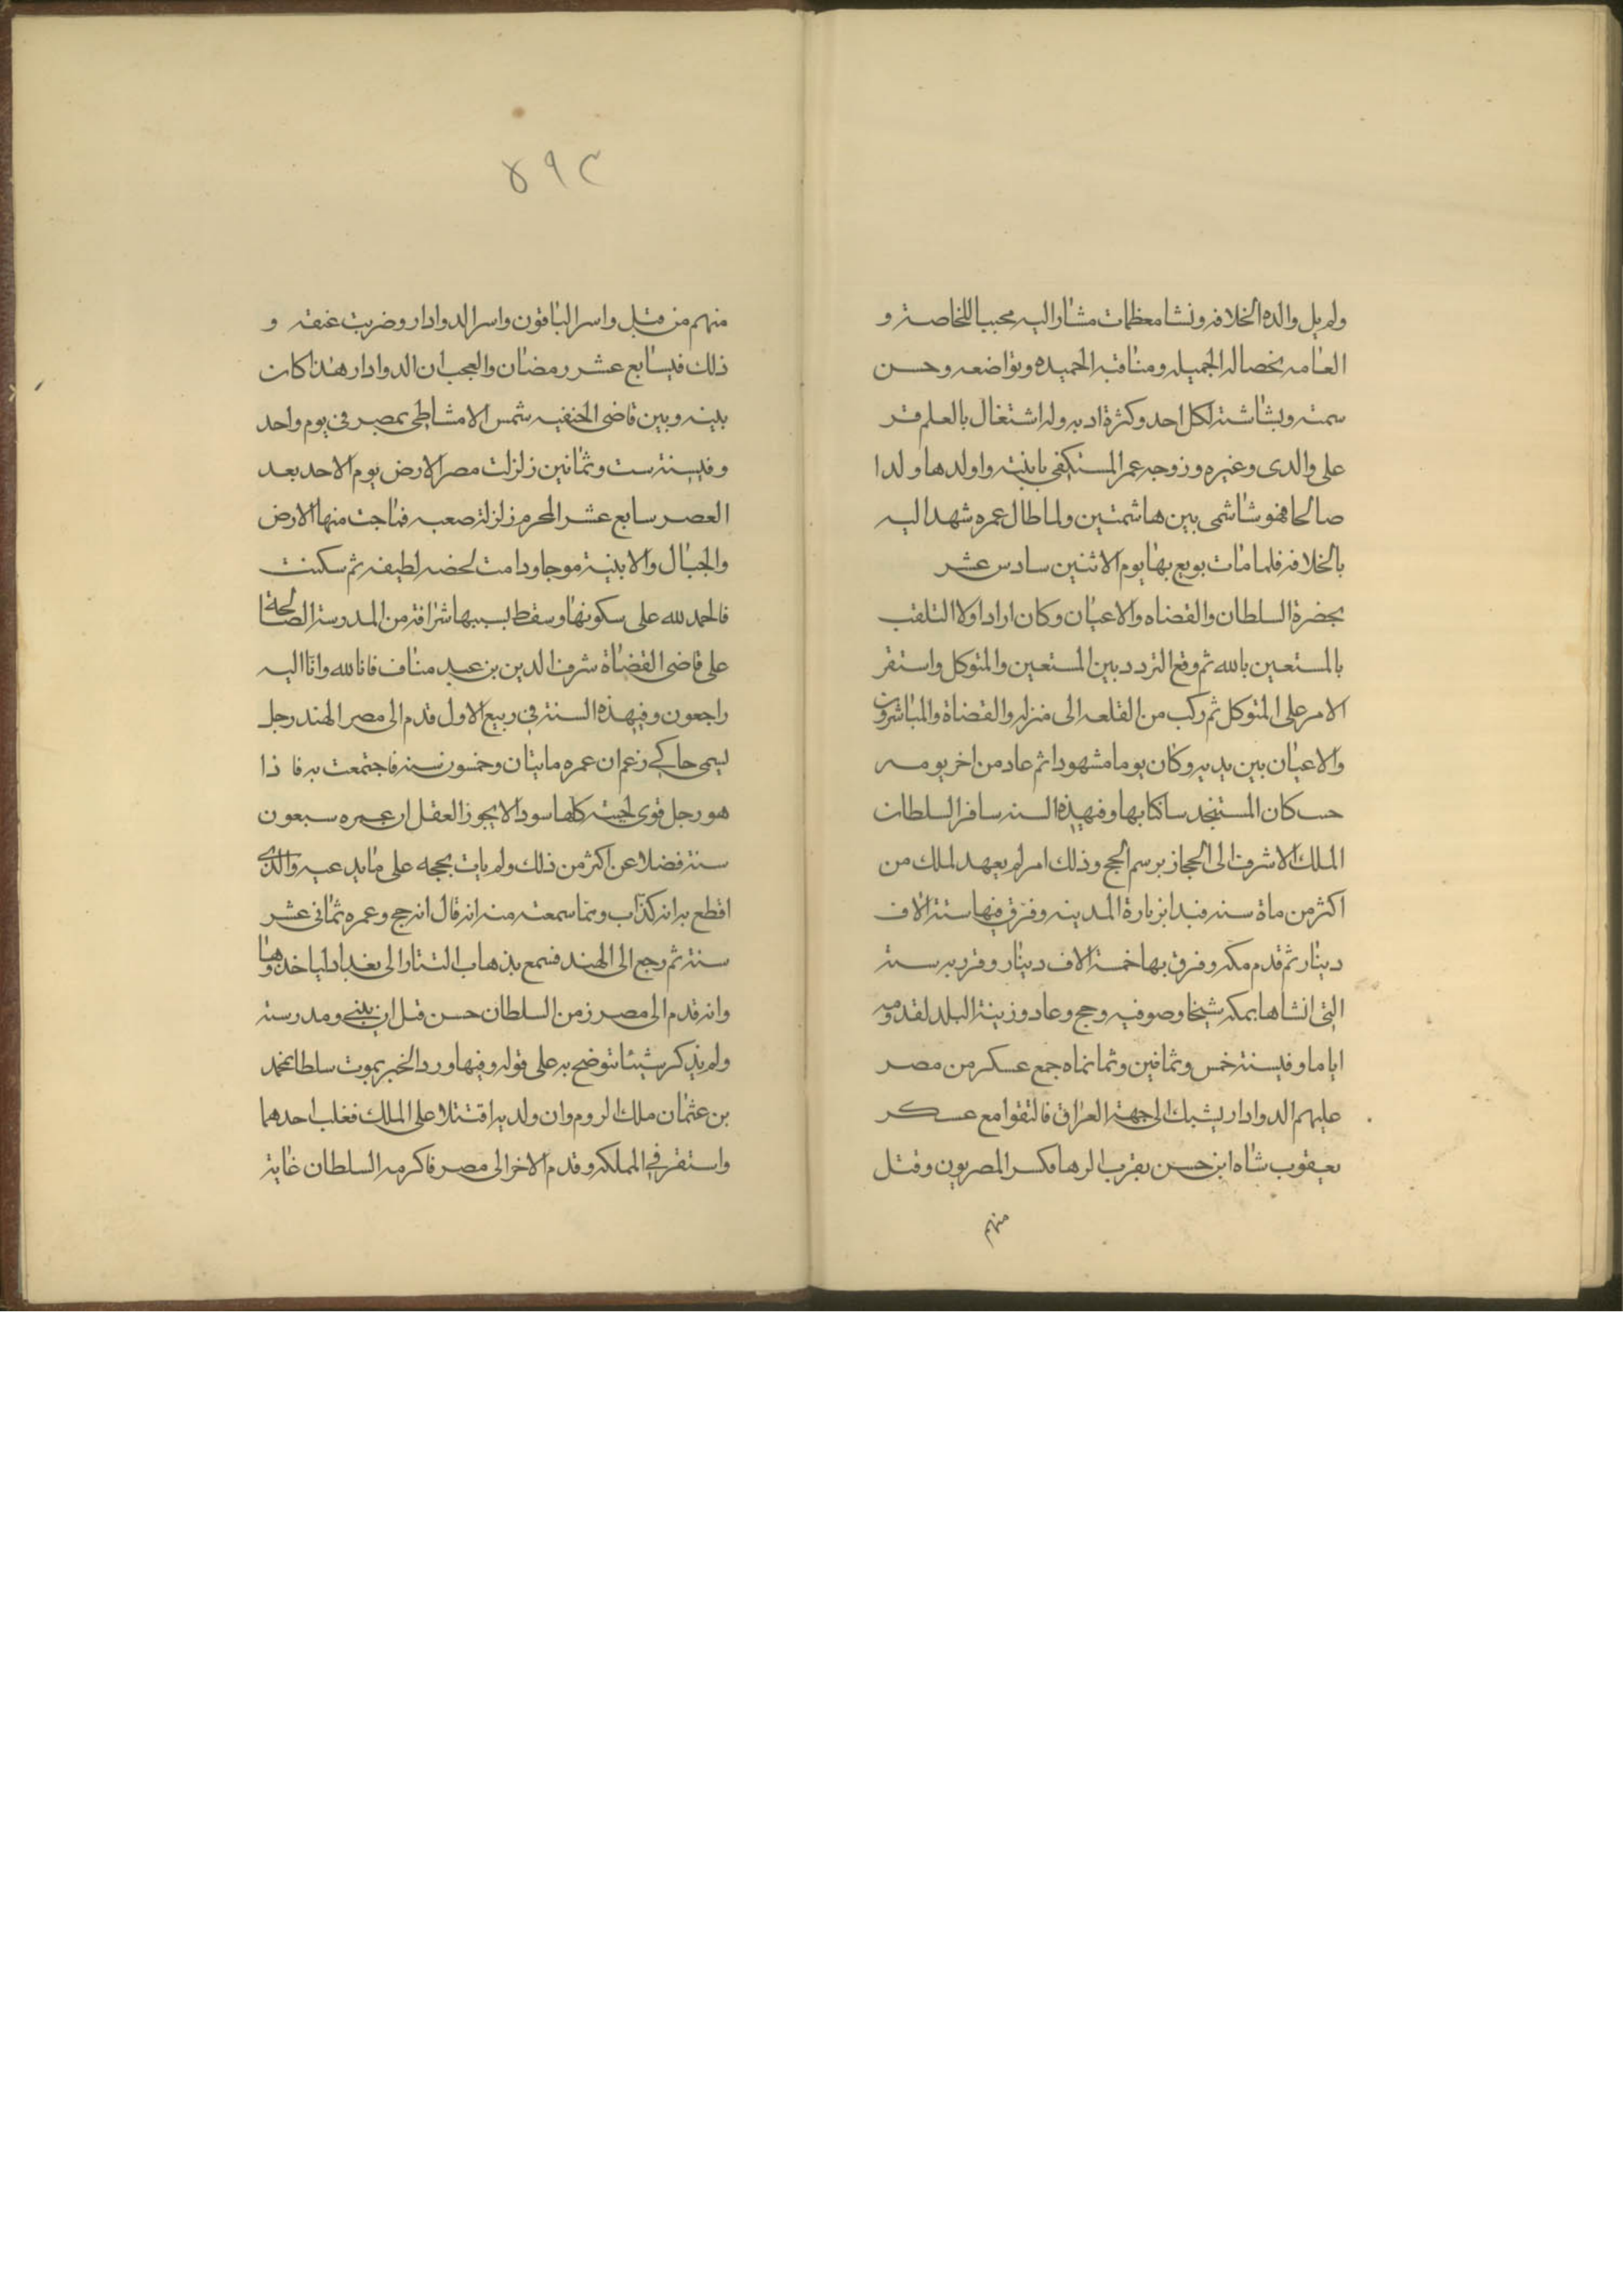 ولم يل والده الخلافه ونشا معظما مشارا اليه محببا للخاصة و
العامه بخصاله الجميله ومناقبه الحميده وتواضعه وحسن
سمته وبشاشته لكل احد وكثرة ادبه وله اشتغال بالعلم قر
على والدى وغيره وزوجه عمر المستكفى بابنته واولدها ولدا
صالحا فهو شاشمى بين هاشمتين ولما طال عمره شهد اليه
بالخلافه فلما مات بويع بها يوم الاثنين سادس عشر
بحضرة السلطان والقضاه والاعيان وكان اراد اولا التلقب
بالمستعين بالله ثم وقع التردد بين المستعين والمتوكل واستقر
الامر على المتوكل ثم ركب من القلعه الى منزله والقضاة والمباشرون
والاعيان بين يديه وكان يوما مشهودا ثم عاد من اخر يومه
حسكان المستنجد ساكنا بها وفى هذه السنه سافر السلطان
الملك الاشرف الى الحجاز برسم الحج وذلك امر لم يعهد لملك من
اكثر من ماة سنه فبدا بزيارة المدينه وفرق فيها ستة الاف
دينار ثم قدم مكه وفرق بها خمسة الاف دينار وقرر به رسته
التى انشاها بمكه شيخا وصوفيه وحج وعاد وزينة البلد لقدومه
اياما وفى سنة خمس وثمانين وثمانماه جمع عسكر من مصر
عليهم الدوادار يشبك الى جهة العراق فالتقوا مع عسكر
يعقوب شاه ابن حسن بقرب الرها فكسر المصريون وقتل
منهم
٥٩٣
منهم من قتل واسر الباقون واسر الدوادار وضربت عنقه و
ذلك فى سابع عشر رمضان والعجب ان الدوادار هذا كان
بينه وبين قاضى الحنفيه شمس الامشاطى بمصر فى يوم واحد
وفى سنة ست وثمانين زلزلت مصر الارض يوم الاحد بعد
العصر سابع عشر المحرم زلزلة صعبه فماجت منها الارض
والجبال والابنية موجا ودامت لحضه لطيفه ثم سكنت
فالحمد لله على سكونها وسقط بسببها شرافة من المدرسة الصالحة
على قاضى القضاة شرف الدين بن عبيد مناف فانا لله وانا اليه
راجعون وفى هذه السنة فى ربيع الاول قدم الى مصر الهند رجل
يسمى حاكى زعم ان عمره مايتان وخمسون سنه فاجتمعت به فا ذا
هو رجل قوى لحيته كلها سودا لا يجوز العقل ان عمره سبعون
سنة فضلا عن اكثر من ذلك ولم يات بحجه على ما يدعيه والذى
اقطع به انه كذاب ومما سمعته منه انه قال انه حج وعمره ثمانى عشر
سنة ثم رجع الى الهند فسمع بذهاب التتار الى بغداد لياخذوها
وانه قدم الى مصر زمن السلطان حسن قبل ان يبنى ومدرسته
ولم يذكر شيئا نتوضح به على قوله وفيها ورد الخبر بموت سلطا محمد
بن عثمان ملك الروم وان ولديه اقتتلا على الملك فغلب احدهما
واستقر فى المملكه وقدم الاخر الى مصر فاكرمه السلطان غاية